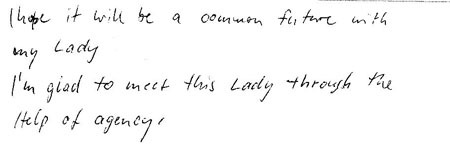 I hope it will be a common future with
my Lady
I'm glad to meet this Lady through the
Help of agency,